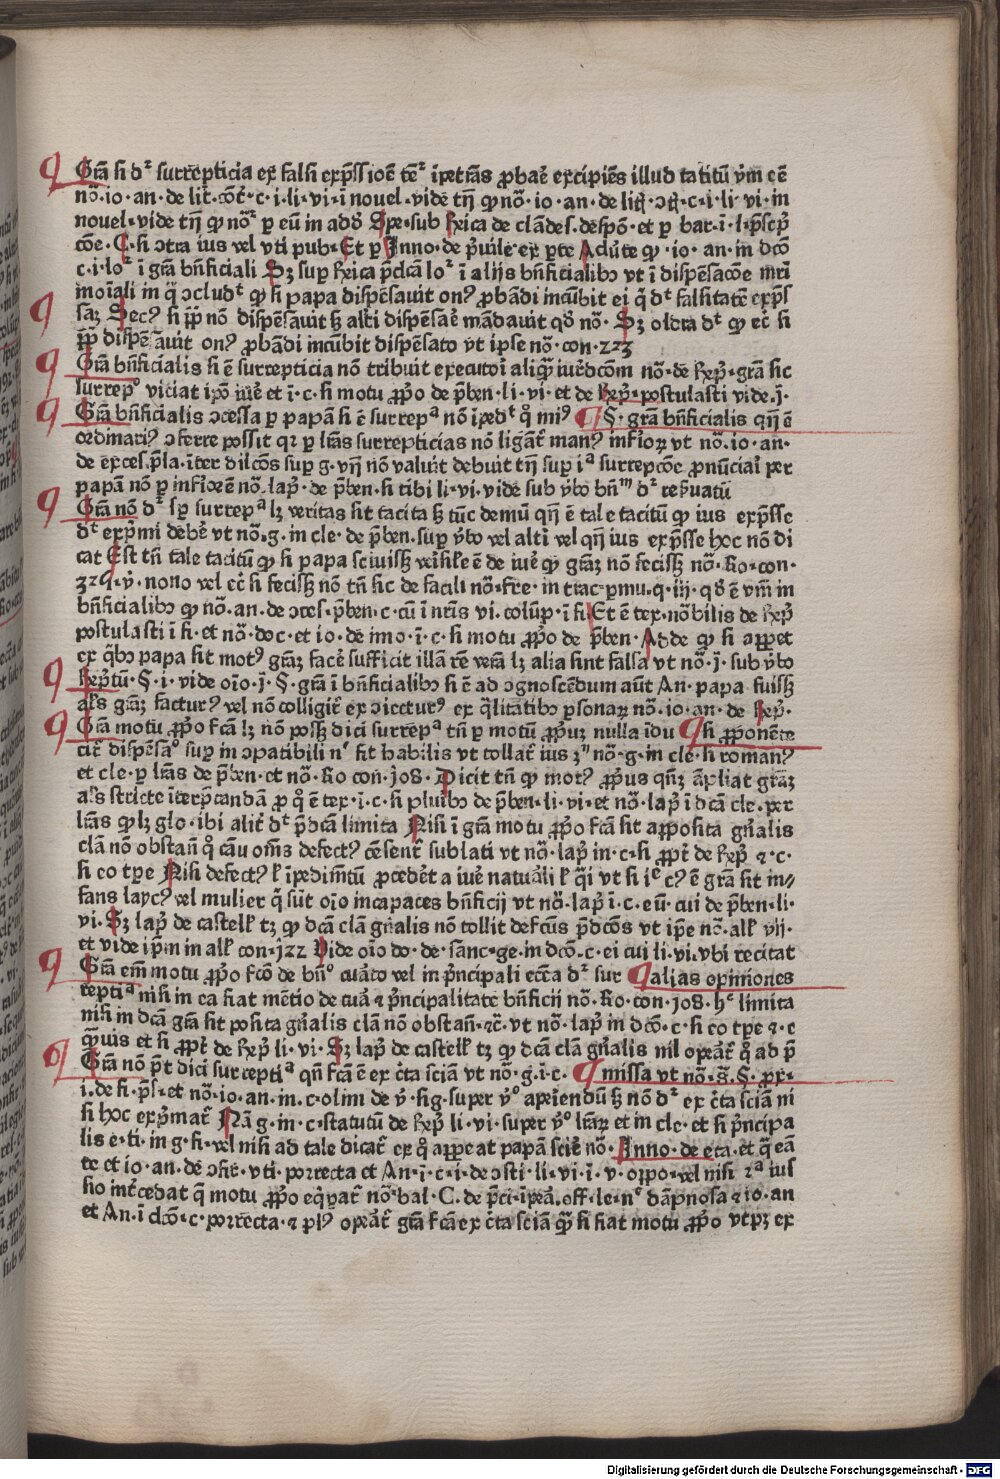 Grã si dʳ surrepticia ex falsi exp̃ssiõe tẽʳ ip̃etrãs ꝓbaȓ excipiẽs illud tatitũ vȓm cẽ
nõ·io·an·de lit̃·cõt̃·c·i·li·vi·i novel·vide tñ ꝙ nõ·io·an·de lig̃·ↄg̃·c·i·li·vi·in
novel·vide tñ ꝙ nõʳ p eũ in addõ Spe·sub Rꝛica de clãdes·despõ·et p bar·ĩ·l·p̃scꝑ
cõe·C·si ↄtra ius vel vti pub·Et p Inno·de p̃uile·ex pte Adũte ꝙ·io·an·in dcõ
c·i·loʳ ĩ grã bñficiali Sꝫ suꝑ Rꝛica p̃dcã loʳ ĩ alijs bñficialibꝰ vt ĩ dispẽsacõe mr̃i
moĩali in q̃ ↄcludʳ ꝙ si papa dispẽsavit onꝰ ꝓbãdi incũbit ei q̃ dʳ falsitatẽ exp̃s
saꝫ Secꝰ si p̃p̃ nõ dispẽsavit sꝫ alt̃i dispẽsaȓ mãdavit qđ nõ· Sꝫ oldra dʳ ꝙ ec̃ si
p̃p̃ dispẽsavit onꝰ ꝓbãdi incũbit dispẽsato vt ipse nõ·con·223
Grã bñficialis si ẽ surrepticia nõ tribuit executoȓ aliq̃ iur̃dcõm nõ·de Rep̃·grã sic
surrepº viciat ip̃o iuȓe et ĩ·c·si motu ꝓp̃o de p̃ben·li·vi·et de Rep̃·postulasti vide·j·
Grã bñficialis ↄcessa p papam si ẽ surrepª nõ ip̃edʳ q̊ miꝰ S·grã bñficialis qñ ẽ
ordinariꝰ ↄferre possit qꝛ p lr̃as surrepticias nõ ligãt̃ manꝰ infioꝝ vt nõ·io·an·
de exces·p̃la·iter dilcõs suꝑ g·vñ nõ valuit debuit tñ suꝑ iª surrepcõe pronũciari per
papã nõ p infioȓẽ nõ·lap̃·de p̃ben·si tibi li·vi·vide sub ṽbo bñᵐ dʳ reſuatũ
Grã nõ dʳ sꝑ surrepª lꝫ veritas sit tacita sꝫ tũc demũ qñ ẽ tale tacitũ ꝙ ius exp̃sse
dʳ exp̃mi debeȓ vt nõ·g·in cle·de p̃ben·suꝑ ṽbo vel alt̃i vel qñ ius exp̃sse hoc nõ di
cat Est tñ tale tacitũ ꝙ si papa scivissꝫ veȓsiȓle ẽ de iuȓe ꝙ grãꝫ nõ fecissꝫ nõ·Ro·con·
324·ṽ·nono vel ec̃ si fecissꝫ nõ tñ sic de facili nõ·fre·in trac·pmu·q·iij·qđ ẽ vȓm in
bñficialibꝰ ꝙ nõ·an·de ↄces·p̃ben·c·cũ ĩ nr̃is vi·colũp·ĩ fi Et ẽ tex·nõbilis de Rep̃
postulasti ĩ fi·et nõ·do·c·et io·de imo·ĩ·c·si motu ꝓp̃o de p̃ben·Adde ꝙ si apparet
ex q̃bꝰ papa sit motꝰ grãꝫ faceȓ sufficit illã rẽ verã lꝫ alia sint falsa vt nõ·j·sub ṽbo
Rep̃tũ·S·i·vide oĩo·j·S·grã ĩ bñficialibꝰ si ẽ ad ↄgnoscẽdum aũt An·papa fuissꝫ
al̃s grãꝫ facturꝰ vel nõ colligit̃ ex ↄiecturꝰ ex q̃litatibꝰ psonaꝝ nõ·io·an·de Rep̃·
Grã motu ꝓp̃o fcã lꝫ nõ possꝫ dici surrepª tñ p motũ ꝓp̃uꝫ nulla idu si ꝓponẽte
cit̃ dispẽsaº suꝑ in ↄpatibili nʳ sit habilis vt tollat̃ ius 3ⁿ nõ·g·in cle·si romanꝰ
et cle·p lr̃as de p̃ben·et nõ·Ro con·308· Dicit tñ ꝙ motꝰ ꝓp̃us qñꝫ ãpliat grãꝫ
al̃s stricte iterp̃tandã p q̊ ẽ tex·ĩ·c·si pluribꝰ de p̃ben·li·vi·et nõ·lap̃ ĩ dcã cle·per
lr̃as ꝙ lꝫ glo·ibi alit̃ dʳ p̃dcã limita Nisi ĩ grã motu ꝓp̃o fcã sit apposita gñalis
clã nõ obstañ q̊ cãu om̃s defectꝰ cẽsent̃ sublati vt nõ·lap̃ in·c·si ꝓpt̃ de Rep̃ ⁊·c·
si eo tpe Nisi defectꝰ l̃ ip̃edim̃tũ ꝓcedẽt a iuȓe natuȓali l̃ q̃i vt si ieᶜꝰ ẽ grã sit in⸗
fans laycꝰ vel mulier q̃ sũt oĩo incapaces bñficij vt nõ·lap̃ ĩ·c·eũ·cui de p̃ben·li·
vi·Sꝫ lap̃ de castell̃ tꝫ ꝙ dcã clã gñalis nõ tollit defcũs p̃dcõs vt ip̃e nõ·all̃ vij·
et vide ip̃m in all̃ con·122 Vide oĩo do·de sanc·ge·in dcõ·c·ei cui li·vi·vbi recitat
Grã em̃ motu ꝓp̃o fcõ de bñº cuȓato vel in p̃ncipali eccĩa dʳ sur alias opiniones
reptiª nisi in ea fiat mẽtio de cuȓa ⁊ p̃ncipalitate bñficij nõ·Ro·con·308·hᶜ limita
nisi in dcã grã sit posita gñalis clã nõ obstañ·⁊c̃·vt nõ·lap̃ in dcõ·c·si eo tpe ⁊·c
q̃uis et si ꝓpt̃ de Rep̃ li·vi·Sꝫ lap̃ de castell̃ tꝫ ꝙ dcã clã gñalis nil opeȓat̃ q̊ ad p̃
Grã nõ p̃t dici surreptiª qñ fcã ẽ ex c̃ta sciã vt nõ·g·ĩ·c· missa vt nõ·s̃·S·pꝛx·
i·de fi·p̃s·et nõ·io·an·in·c·olim de ṽ·sig·super ṽº apeȓiendũ sꝫ nõ dʳ ex c̃ta sciã ni
si hoc exp̃mat̃ Nã g·in·c·statutũ de Rep̃ li·vi·super ṽº lr̃aꝝ et in cle·et si p̃ncipa
lis e·ti·in g·si·vel nisi ad tale dicat̃ ex q̊ appeat papã sciȓe nõ·Inno·de eta·et q̃ eã
te et io·an·de ↄfir·vti·poꝛrecta et An·ĩ·c·i·de ↄsti·li·vi·ĩ·v·oppo·vel nisi 2ª ius
sio int̃cedat q̃ motu ꝓp̃o eq̃pat̃ nõ·bal·C·de p̃ci·ip̃ea·off·le·nᶜ dãpnosa ⁊ io·an
et An·ĩ dcõ·c·poꝛrecta·⁊ plꝰ opeȓat̃ grã fcã ex c̃ta sciã q̃ si fiat motu ꝓp̃o vtpꝫ ex
Digitalisierung gefördert durch die Deutsche Forschungsgemeinschaft - DFG